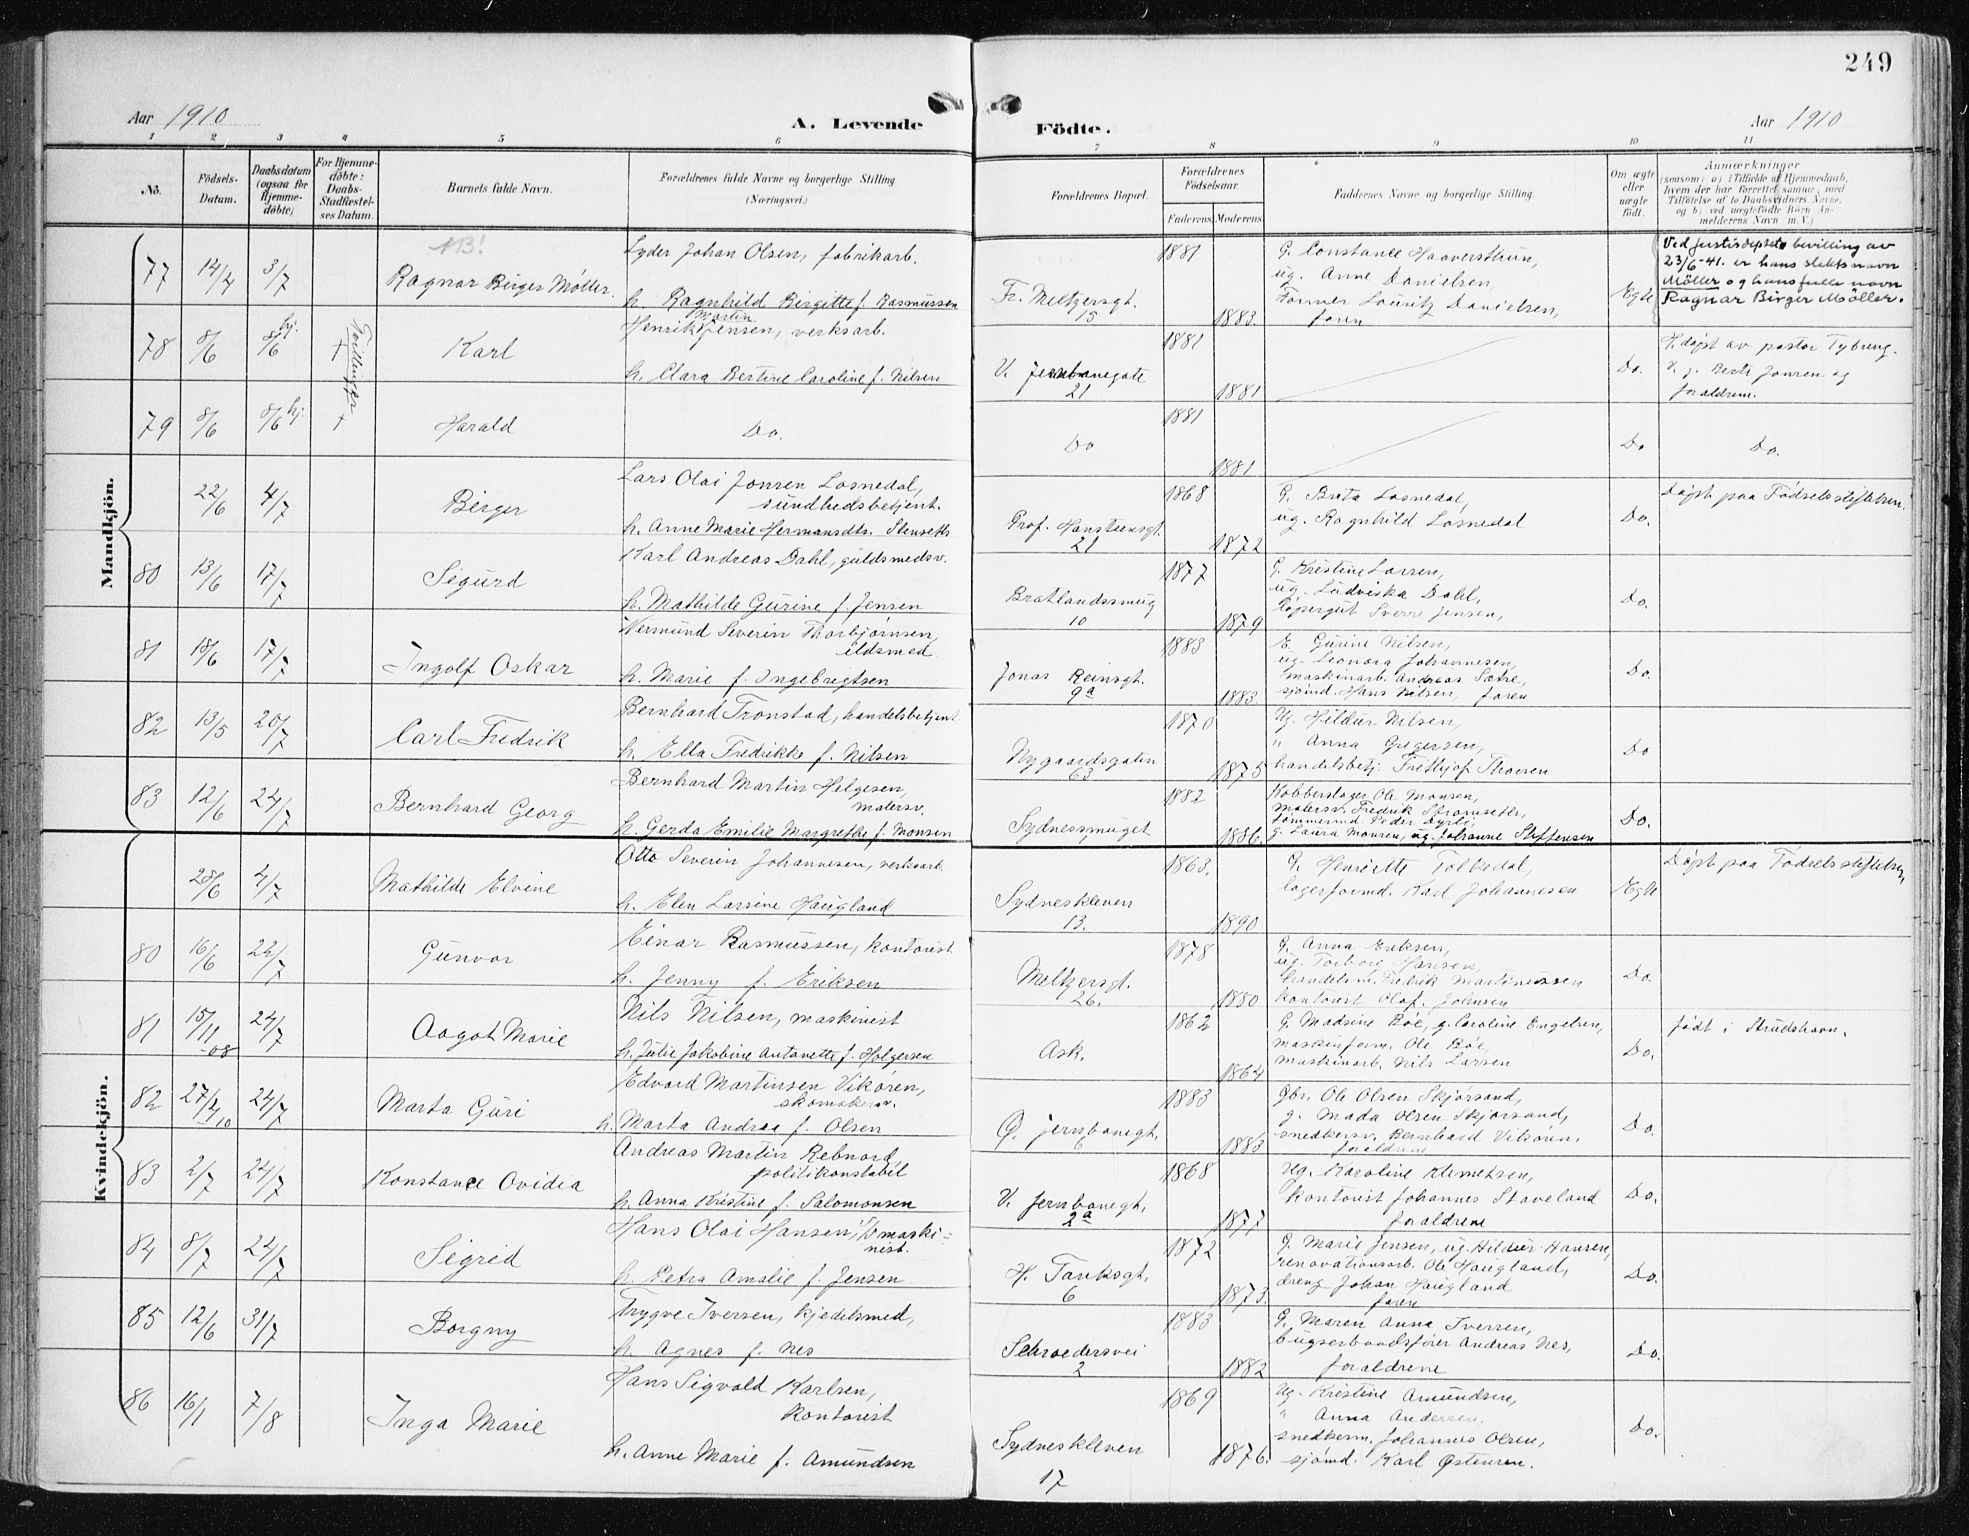 249
Aar 1910
A. Levende Födte.
Aar 1910
1 2 3 4 5 6 7 8 9 10 11
No.
Födsels-Datum.
Daabsdatum (ogsaa for Hjemmedöbte)
For Hjemmedöbte: Daabs-Stadfæstelses Datum.
Barnets fulde Navn.
Forældrenes fulde Navne og borgerlige Stilling (Næringsvei.)
Forældrenes Bopæl.
Forældrenes Födselsaar.
Faderens Moderens
Faddernes Navne og borgerlige Stilling.
Om ægte eller uægte födt.
Anmærkninger
(saasom: a) i Tilfælde af Hjemmedaab, hvem der har forrettet samme, med Tilföielse af to Daabsvidners Navne, og b) ved uægtefödte Börn Anmelderens Navn m.V.)
Mandkjön.
77 14/4 3/7
NB!
Ragnar Birger Møller.
Lyder Johan Olsen, fabrikarb.
h. Ragnhild Birgitte f. Rasmussen
Fr. Meltzersgt. 15
1881 1883.
G. Constance Haaversthun,
ug. Anne Danielsen,
Former Lauritz Danielsen,
faren
Egte
Ved justisdeptets bevilling av
23/6-41. er hans slektsnavn
Møller og hans fulle navn
Ragnar Birger Møller.
78 8/6 8/6 hj. + Tvillinger
Karl
Henrik Martin Jensen, verksarb.
h. Clara Bertine Caroline f. Nilsen
V. Jernbanegate 21
1881 1881
Do.
H.døpt av pastor Tybring.
V. g. Berte Jonsen og
forældrene.
79 8/6 8/6 hj. +
Harald
Do.
Do
1881 1881
Do
Do.
22/6 4/7
Birger
Lars Olai Jonsen Losnedal,
sundhedsbetjent.
h. Anne Marie Hermansdtr. Stenseth
Prof. Hansteensgt. 21
1868 1872
G. Brita Losnedal,
ug. Ragnhild Losnedal
Do.
Døpt paa Fødselsstiftelsen.
80 13/6 17/7
Sigurd
Karl Andreas Dahl, guldsmedsv.
h. Mathilde Gurine f. Jensen
Bratlandssmug 10
1877 1879
G. Kristine Larsen,
ug. Ludviska Dahl,
løpergut Sverre Jensen,
Do.
81 18/6 17/7
Ingolf Oskar
Vermund Severin Thorbjørnsen,
ildsmed
h. Marie f. Ingebrigtsen
Jonas Reinsgt. 9a
1883 1883.
E. Gurine Nilsen,
ug. Leonora Johannesen,
maskinarb. Andreas Sætre,
sjømd. Hans Nilsen, faren
Do.
82 13/5 20/7
Carl Fredrik
Bernhard Tronstad, handelsbetjent
h. Ella Fredrikke f. Nilsen
Nygaardsgaten 63
1870 1875
Ug. Hildur Nilsen,
" Anna Gregersen,
handelsbetj. Frithjof Thoresen
Do
83 12/6 24/7
Bernhard Georg
Bernhard Martin Helgesen,
malersv.
h. Gerda Emilie Margrethe f. Monsen
Sydnessmuget
1882 1886.
Kobberslager Ole Monsen,
malersv. Fredrik Strømseth,
tømmermd. Peder Dyrli,
g. Laura Monsen, ug. Johanne Steffensen
Do.
Kvindekjön.
25/6 4/7
Mathilde Elvine
Otto Severin Johannesen, verksarb.
h. Elen Larsine Haugland
Sydneskleven 13.
1863. 1890
G. Henriette Tolbedal,
lagerformd. Karl Johannesen
Egte
Døpt paa Fødselsstiftelsen,
80 16/6 22/7
Gunvor
Einar Rasmussen, kontorist
h. Jenny f. Eriksen
Meltzersgt. 26.
1878 1880
G. Anna Eriksen,
ug. Torborg Hansen,
handelsm. Fredrik Martinussen
kontorist Olaf Johnsen
Do.
81 15/11-08 24/7
Aagot Marie
Nils Nilsen, maskinist
h. Julie Jakobine Antonette f. Holgersen
Ask.
1862 1864
G. Madsine Bøe, g. Caroline Engelsen,
maskinform. Ole Bøe,
maskinarb. Nils Larsen
Do.
født i Strudshavn.
82 27/4 10 24/7
Marta Guri
Edvard Martinsen Vikøren,
skomakersv.
h. Marta Andrea f. Olsen
Ø. Jernbanegt. 6
1883 1883
Gbr. Ole Olsen Skjørsand,
g. Mada Olsen Skjørsand,
snedkersv. Bernhard Vikøren.
forældrene
Do.
83 2/7 24/7
Konstance Ovidia
Andreas Martin Rebnord,
politikonstabel
h. Anna Kristine f. Salomonsen
V. Jernbanegt. 2a
1868 1877
Ug. Karoline Klemetsen,
kontorist Johannes Staveland
forældrene
Do.
84 8/7 24/7
Sigrid
Hans Olai Hansen, maskinist.
h. Petra Amalie f. Jensen
H. Tanksgt. 6
1872 1873.
G. Marie Jensen, ug. Hildur Hansen,
renovationsarb. Ole Haugland,
dreng Johan Haugland
faren
Do.
85 12/6 31/7
Borgny
Trygve Iversen, kjedelsmed,
h. Agnes f. Nes
Schroedersvei 2
1883 1882
G. Maren Anna Iversen,
bugserbaadsfører Andreas Nes,
forældrene
Do.
86 16/1 7/8
Inga Marie
Hans Sigvald Karlsen,
kontorist
h. Anne Marie f. Amundsen
Sydneskleven 17
1869 1876.
Ug. Kristine Amundsen,
" Anna Andersen,
snedkerm. Johannes Olsen,
sjømd. Karl Østensen.
Do.